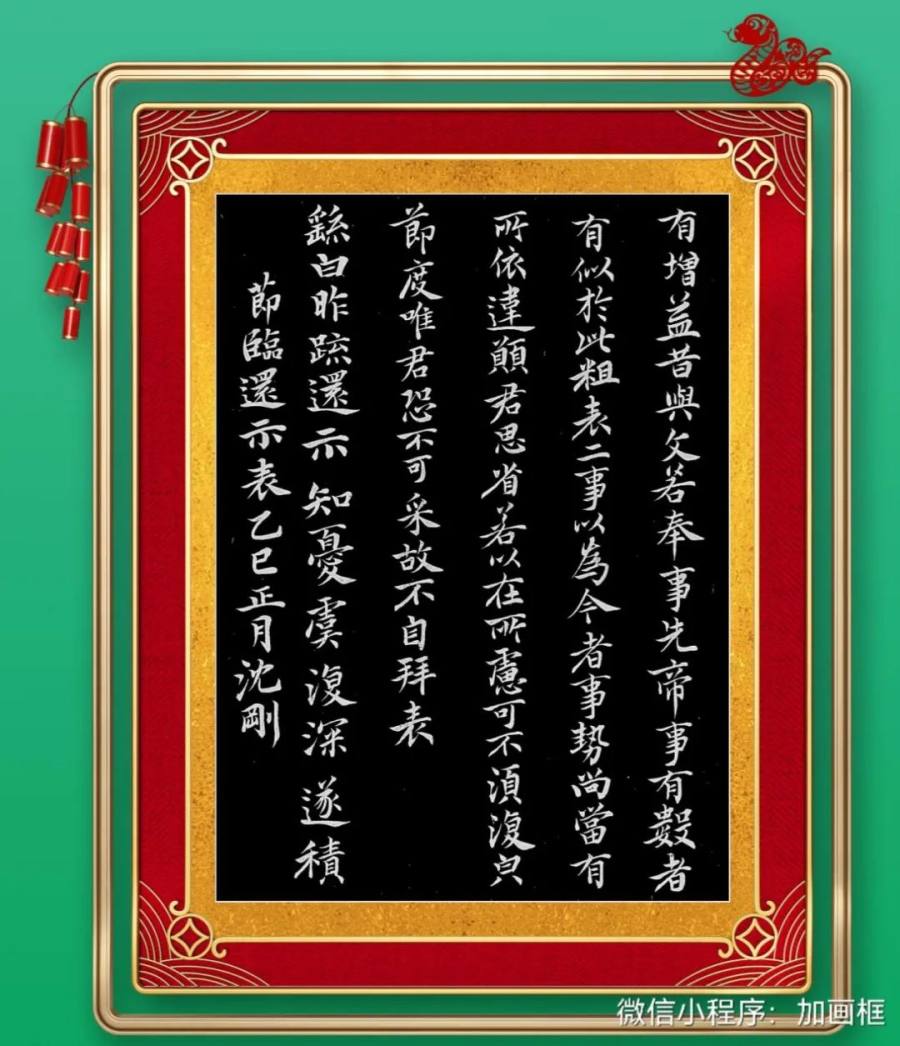 有增益昔與文若奉事先帝事有數者
有似於此粗表二事以為今者事勢尚當有
所依違願君思省若以在所慮可不須復皃
節度唯君恐不可采故不自拜表
繇白昨疏還示知憂虞復深遂積
節臨還示表乙巳正月沈剛
微信小程序：加画框